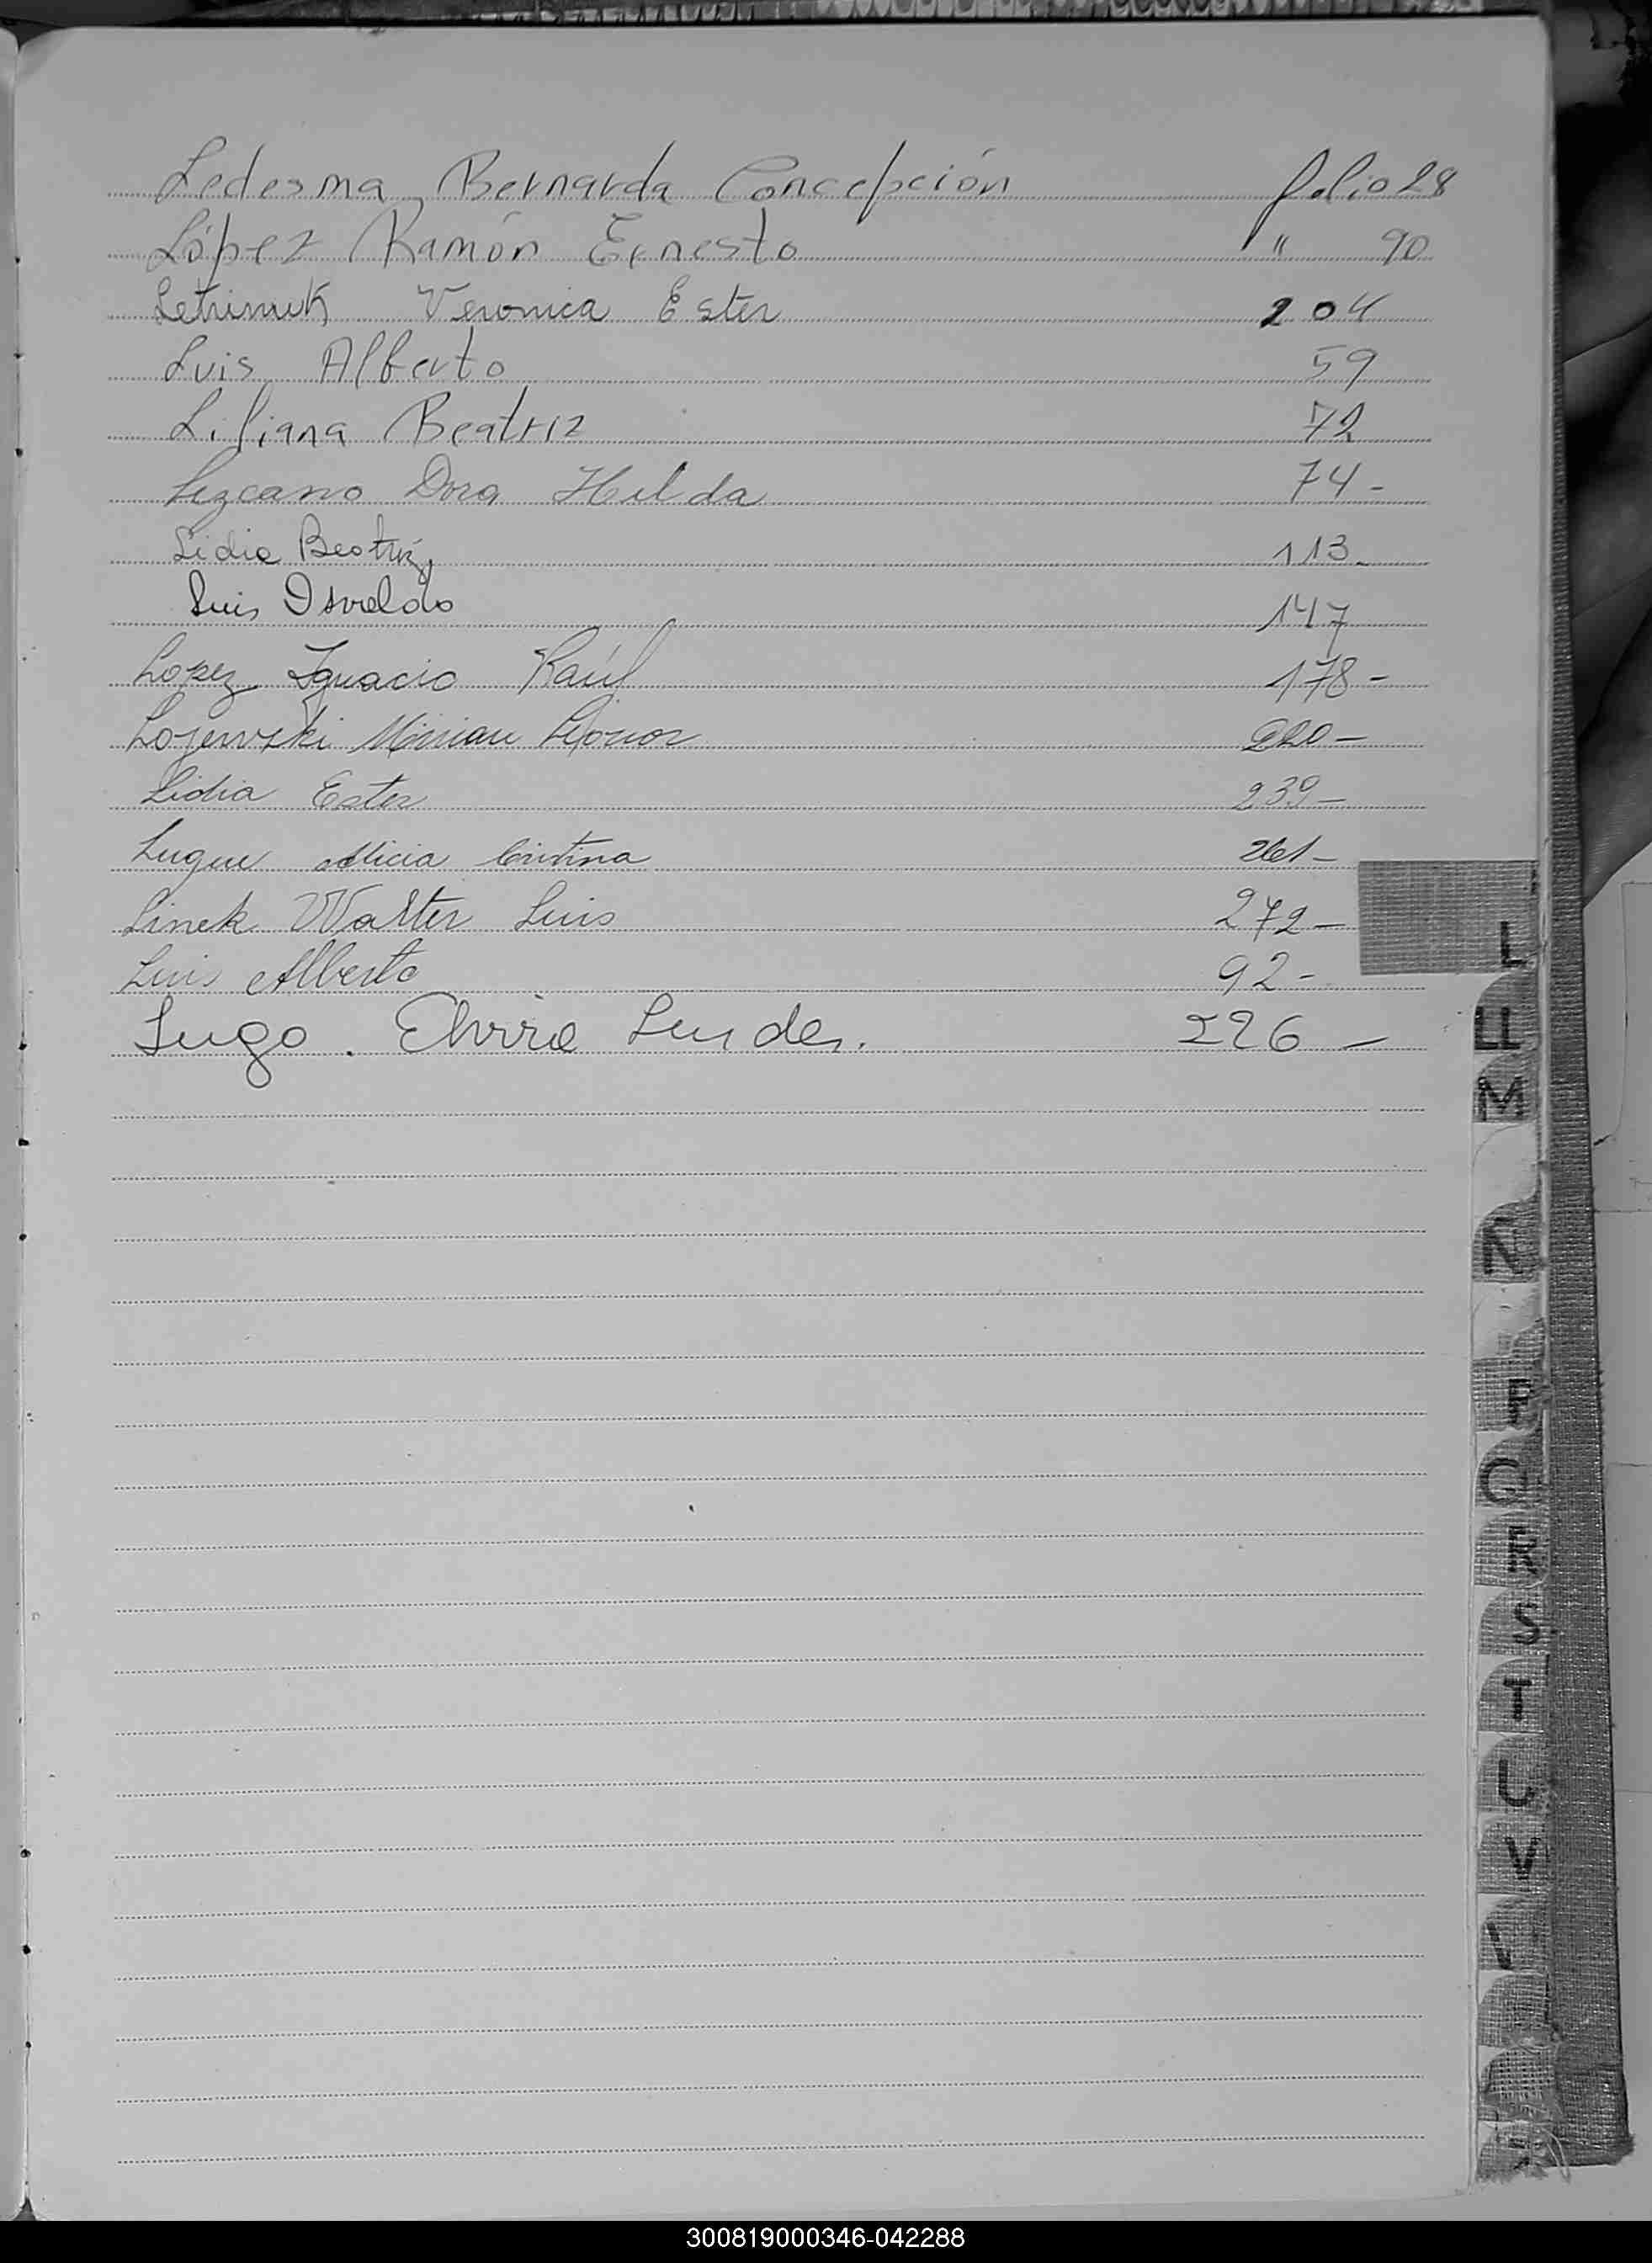 Ledesma Bernarda Concepción folio 28
López Ramón Ernesto " 90
Veronica Ester 204
Luis Alberto 59
Liliana Beatriz 72
Lezcano Dora Hilda 74-
Lidia Beatriz 113-
Luis Osvaldo 147
Lopez Ignacio Raúl 178-
Lojewski Miriam Leonor 220-
Lidia Ester 239-
Luque Alicia Cristina 261-
Linek Walter Luis 272-
Luis Alberto 92-
Lugo. Elvira 226-
L
LL
M
N
P
Q
R
S
T
U
V
300819000346-042288